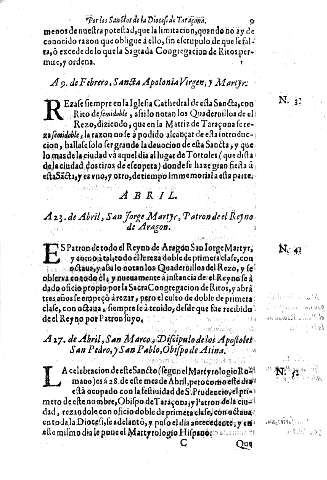 Por los Sanctos de la Diocesi de Taraçona. 9
menos de nuestra potestad, que la limitacion, quando no ay de
conocido razon que obligue á ello, sin escrupulo de que se fal-
ta, ó excede de lo que la Sagrada Congregacion de Ritos per-
mite, y ordena.
A 9. de Febrero, Sancta Apolonia Virgen, y Martyr.
REzase siempre en la Iglesia Cathedral de esta Sancta, con N. 3.
Rito de semidoble, assi lo notan los Quadernillos de el
Rezo, diziendo, que en la Matriz de Taraçona se re-
ze semidoble, la razon no se á podido alcançar de esta introduc-
cion, hallase solo ser grande la devocion de esta Sancta, y que
lo mas de la ciudad vá aquel dia al lugar de Tortoles (que dista
de la ciudad dos tiros de escopeta) donde se haze gran fiesta á
esta Sãcta, y es vno, y otro, de tiempo immemorial a esta parte.
ABRIL.
A 23. de Abril, San Jorge Martyr, Patron de el Reyno
de Aragon.
ES Patron de todo el Reyno de Aragon San Jorge Martyr, N. 4.
y como á tal, todo èl le reza doble de primera clase, con
octava, y assi lo notan los Quadernillos del Rezo, y se
observa en todo èl; y nuevamente á instancia de el Reyno se á
dado oficio propio por la Sacra Congregacion de Ritos, y abrá
tres años se empeçó á rezar, pero el culto de doble de primera
clase, con octava, siempre se á tenido, desde que fue recibido
de el Reyno por Patron suyo.
A 27. de Abril, San Marco, Discipulo de los Apostoles
San Pedro, y San Pablo, Obispo de Atina.
LA celebracion de este Sancto (segun el Martyrologio Ro- N. 5.
mano) es á 28. de este mes de Abril, pero como este dia
está ocupado con la festividad de S. Prudencio, el prime-
ro de este nombre, Obispo de Taraçona, y Patron de la ciu-
dad, rezandole con oficio doble de primera clase, con octava
en toda la Diocesi, se adelantó, y puso el dia antecedente; y en
este mismo dia le pone el Martyrologio Hispano.
C Que